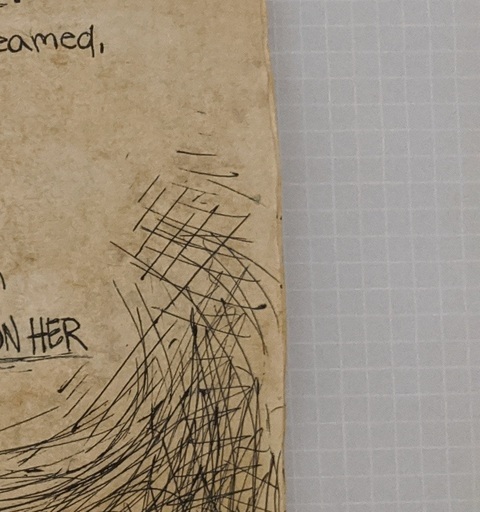 eamed,
ON HER